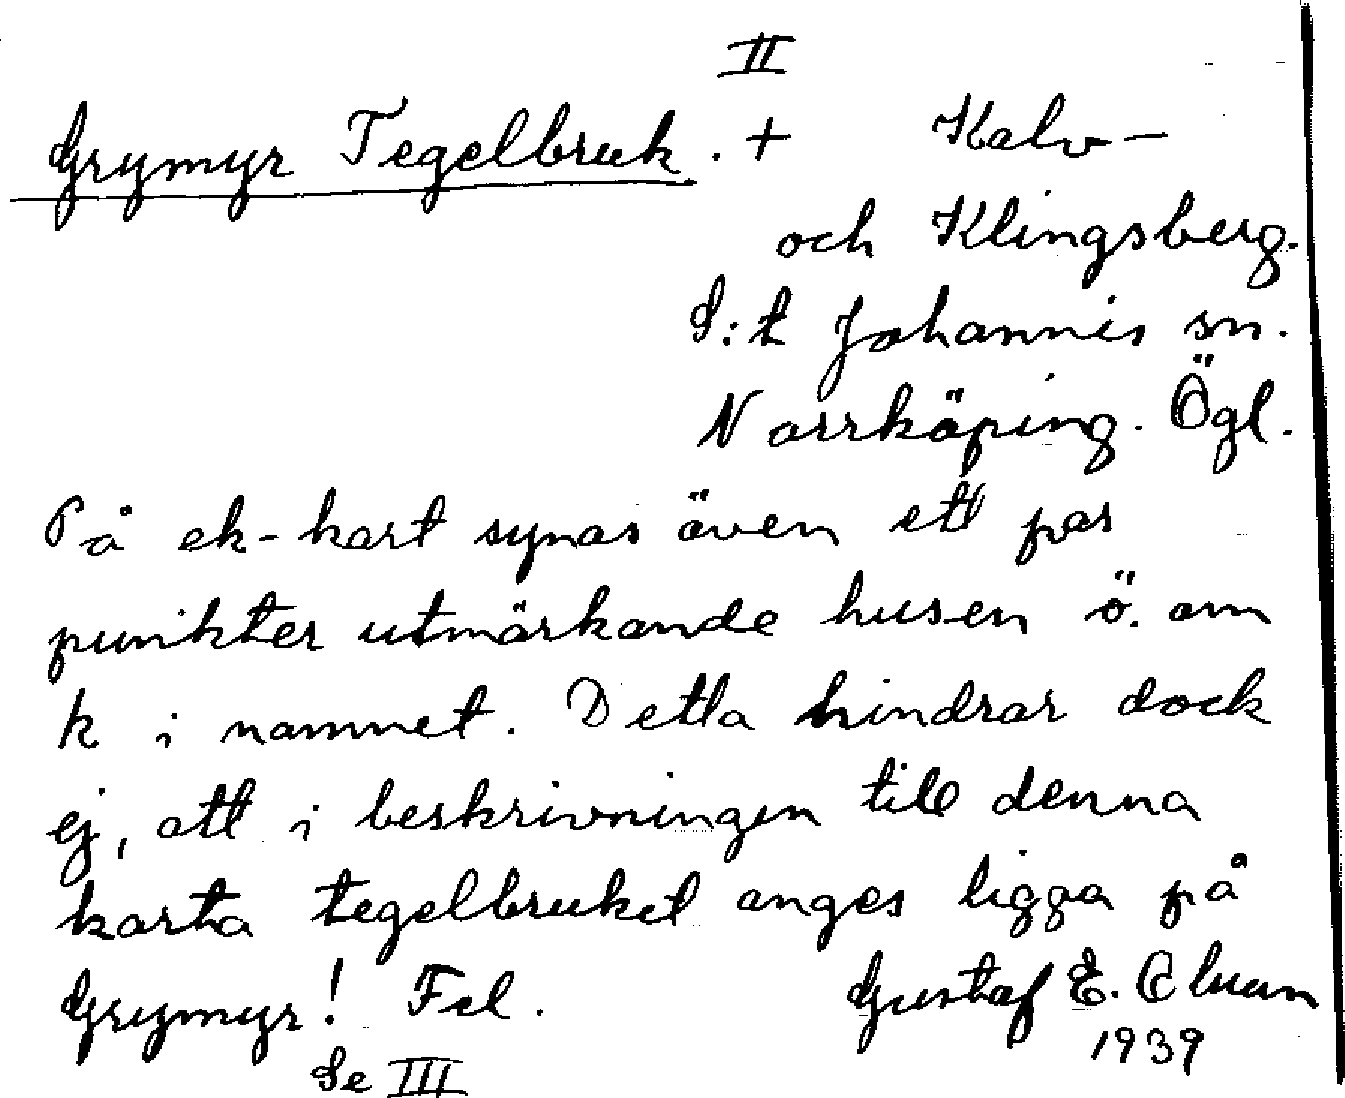 II
Grymyr Tegelbruk. + Kalv-
och Klingsberg.
S:t Johannis sn.
Norrköping. Ögl.
På ek-kart synas även ett par
punkter utmärkande husen ö. om
k i namnet. Detta hindrar dock
ej, att i beskrivningen till denna
karta tegelbruket anges ligga på
Grymyr! Fel. Gustaf E.
1939
Se III